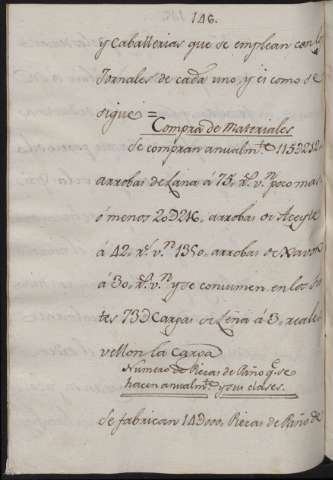 146.
y Caballerias que se emplean con los
Jornales de cada uno, y es como se
sigue =
Compra de Materiales
Se compran anualmte. 115D212
arrobas de Lana à 75, rs. vn. poco mas
ó menos 20D246, arrobas de Aceyte
à 42, rs. vn. 1350, arrobas de Xavon
à 30, rs. vn. y se consumen en los
tes 73D Cargas de Leña à 3, reales
vellon la Carga
Numero de Piezas de Paño qe. se
hacen anualmte. y sus clases.
Se fabrican 14D000, Piezas de Paño de